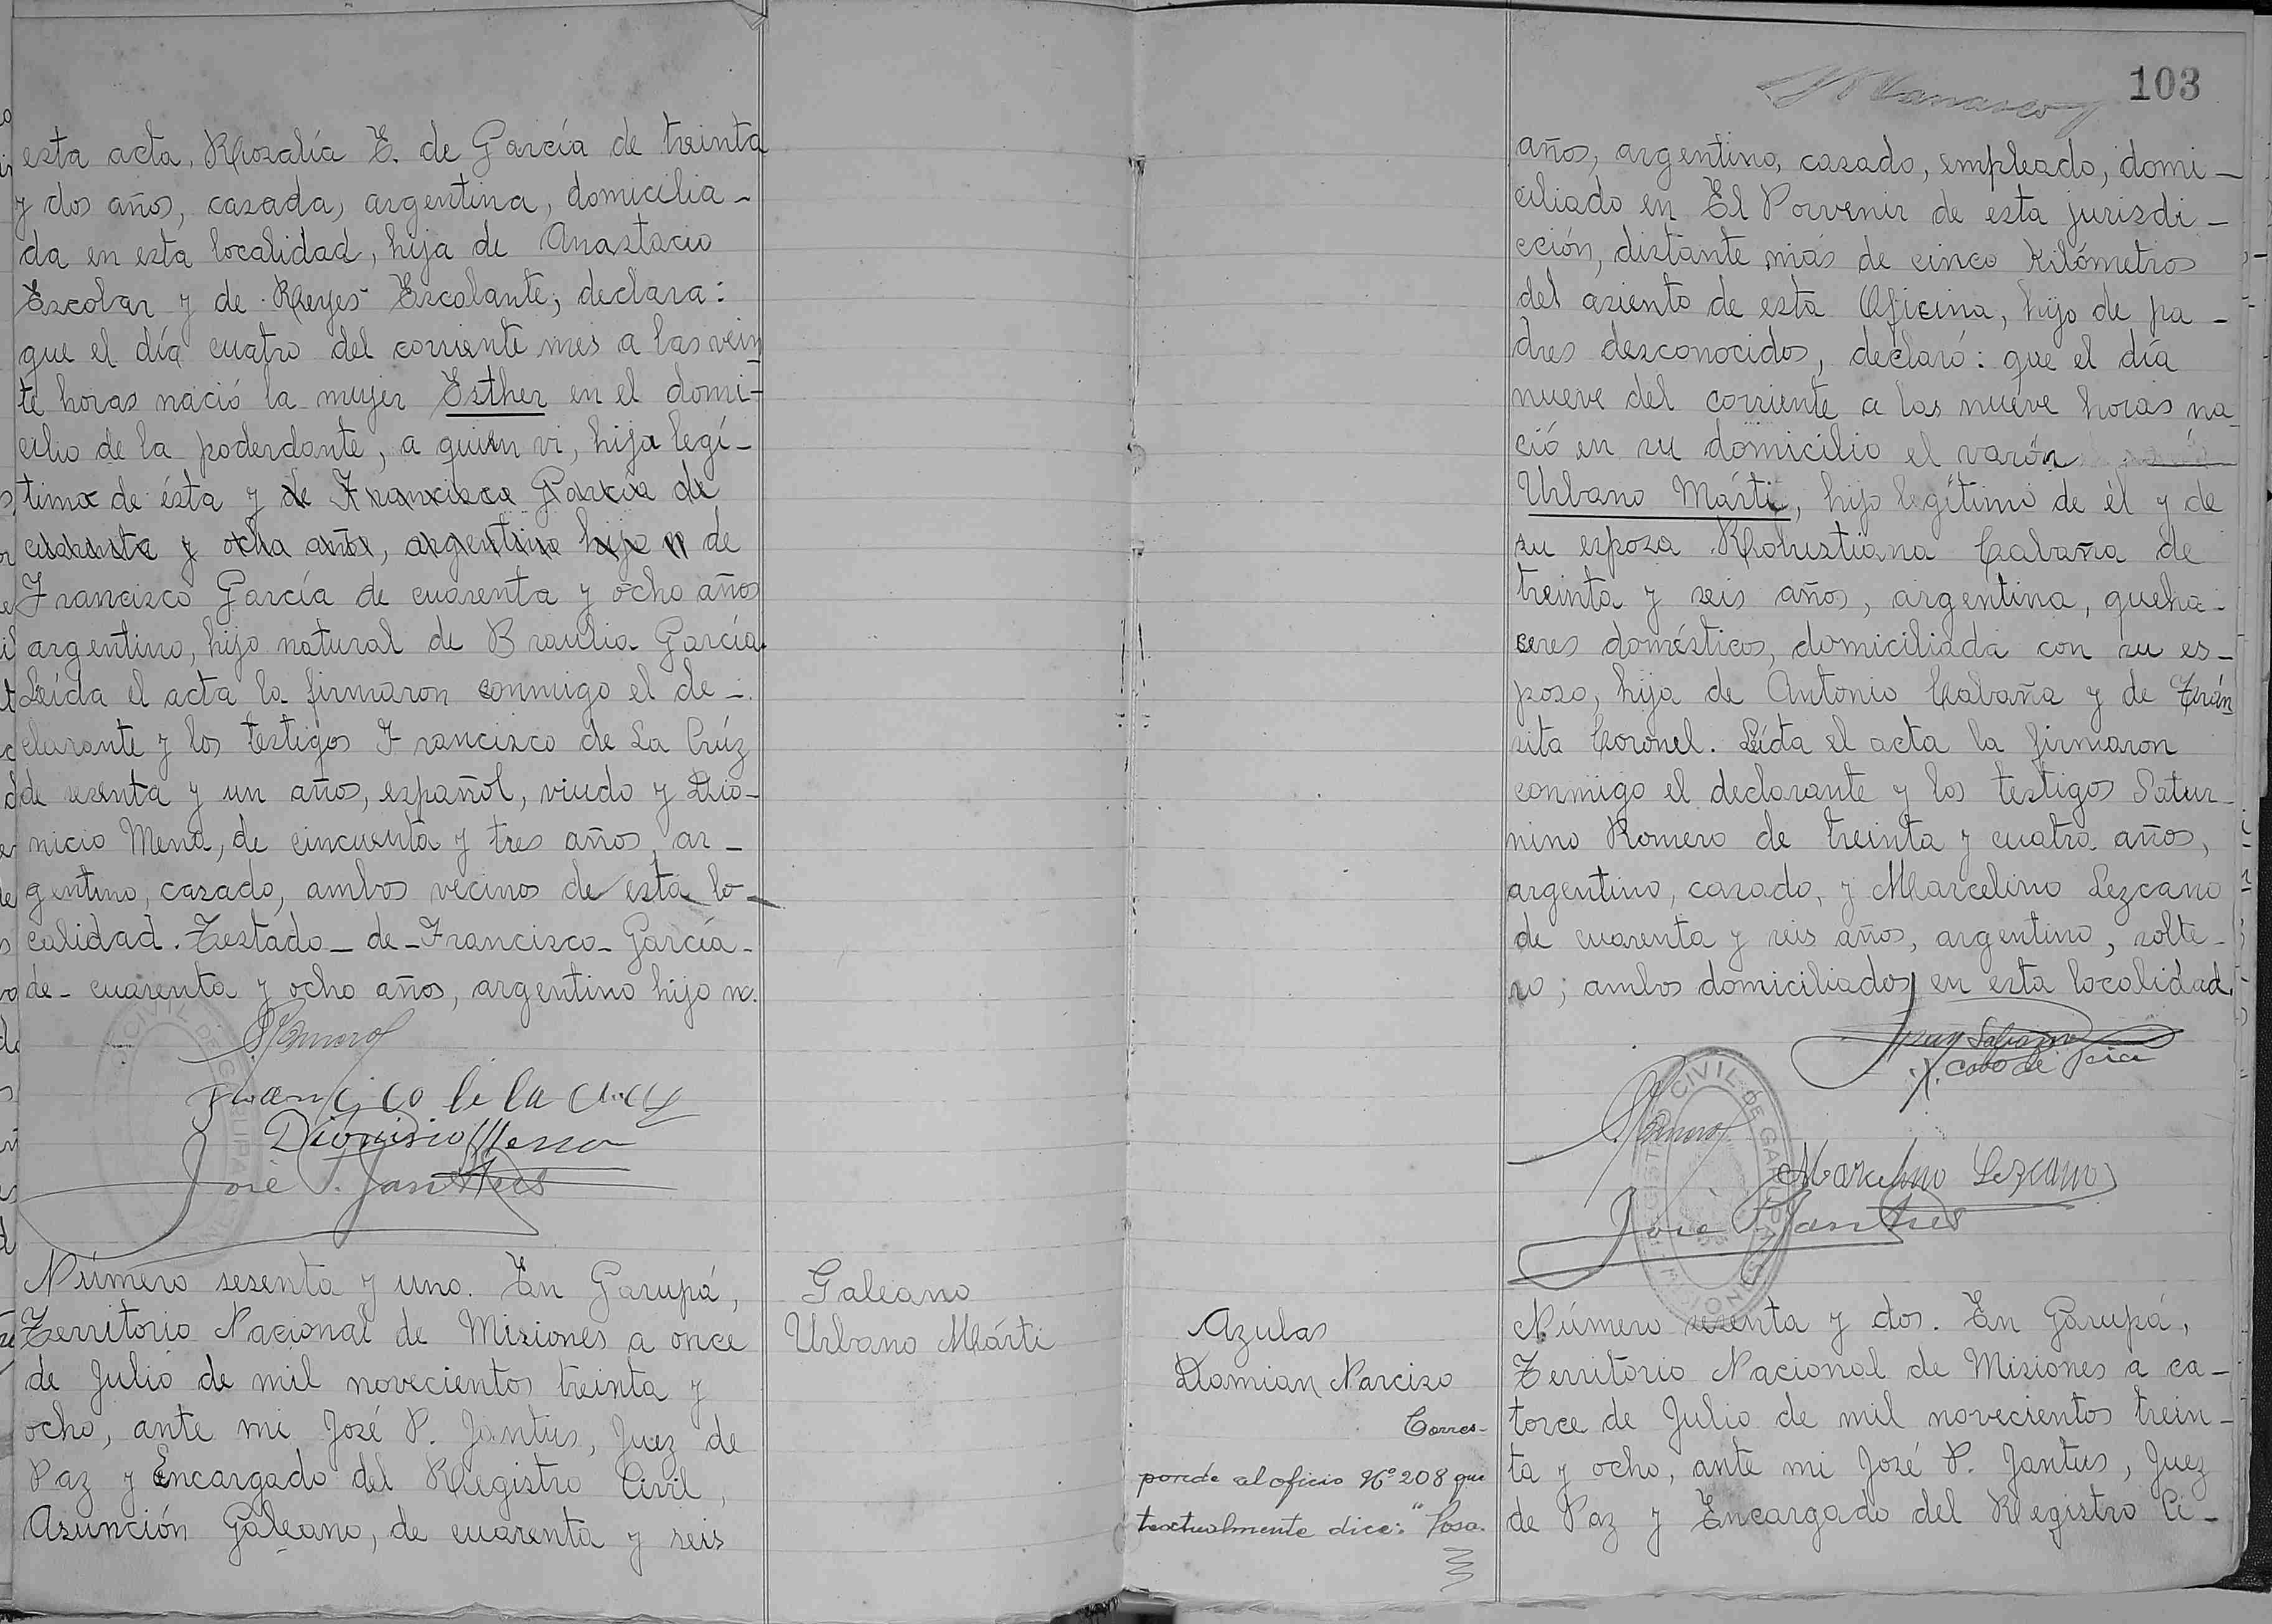 esta acta, Rosalía E. de García de treinta
y dos años, casada, argentina, domicilia-
da en esta localidad, hija de Anastacio
Escobar y de Reyes Escalante, declara:
que el día cuatro del corriente mes a las vein
te horas nació la mujer Esther en el domi-
cilio de la poderdante, a quien vi, hija legí-
tima de ésta y de Francisco García de
cuarenta y ocho años, argentino hijo n de
Francisco García de cuarenta y ocho años
argentino, hijo natural de Braulia García.
Leída el acta la firmaron conmigo el de-
clarante y los testigos Francisco de La Crúz
de sesenta y un años, español, viudo y Dio-
nicio Mena, de cincuenta y tres años, ar-
gentino, casado, ambos vecinos de esta lo-
calidad. Testado-de-Francisco-García-
de-cuarenta y ocho años, argentino hijo n.
Francisco de la Cruz
Dionisio Mena
José P. Jantus
Número sesenta y uno. En Garupá,
Territorio Nacional de Misiones a once
de Julio de mil novecientos treinta y
ocho, ante mi José P. Jantus, Juez de
Paz y Encargado del Registro Civil,
Asunción Galeano, de cuarenta y seis
Galeano
Urbano Márti
Azulas
Damian Narciso
Corres-
ponde al oficio Nº 208 que
textualmente dice: "Posa.
103
años, argentino, casado, empleado, domi-
ciliado en El Porvenir de esta jurisdi-
cción, distante más de cinco kilómetros
del asiento de esta Oficina, hijo de pa-
dres desconocidos, declaró: que el día
nueve del corriente a las nueve horas na
ció en su domicilio el varón
Urbano Márti, hijo legítimo de él y de
su esposa Robustiana Cabaña de
treinta y seis años, argentina, queha-
ceres domésticos, domiciliada con su es-
poso, hija de Antonio Cabaña y de Trán
sita Coronel. Leída el acta la firmaron
conmigo el declarante y los testigos Satur-
nino Romero de treinta y cuatro años,
argentino, casado, y Marcelino Lezcano
de cuarenta y seis años, argentino, solte-
ro; ambos domiciliados en esta localidad.
Marcelino Lezcano
José P. Jantus
Número sesenta y dos. En Garupá,
Territorio Nacional de Misiones a ca-
torce de Julio de mil novecientos trein-
ta y ocho, ante mi José P. Jantus, Juez
de Paz y Encargado del Registro Ci-